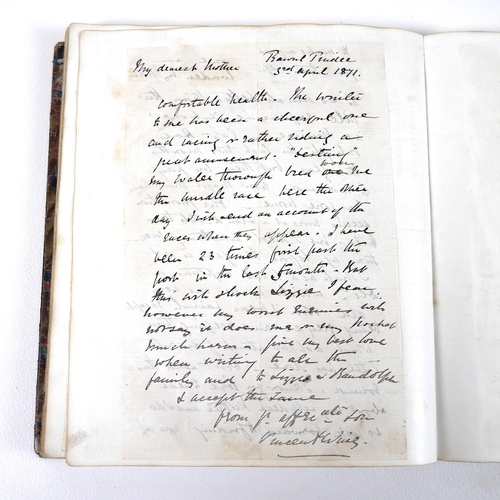 My dearest Mother Rawul Pindee
3rd April 1871.
comfortable health. The winter
to me has been a cheerful one
and racing & rather riding a
great amusement. "Destiny"
my waler thorough bred won me
the hurdle race here the other
day I will send an account of the
races when they appear. I have
been 23 times first past the
post in the last 5 months. But
this will shock Lizzie I fear.
however my worst enemies will
not say it does me or my pocket
much harm. give my best love
when writing to all the
family and to Lizzie & Randolph
& accept the same
from yr affec ate Son
Vincent